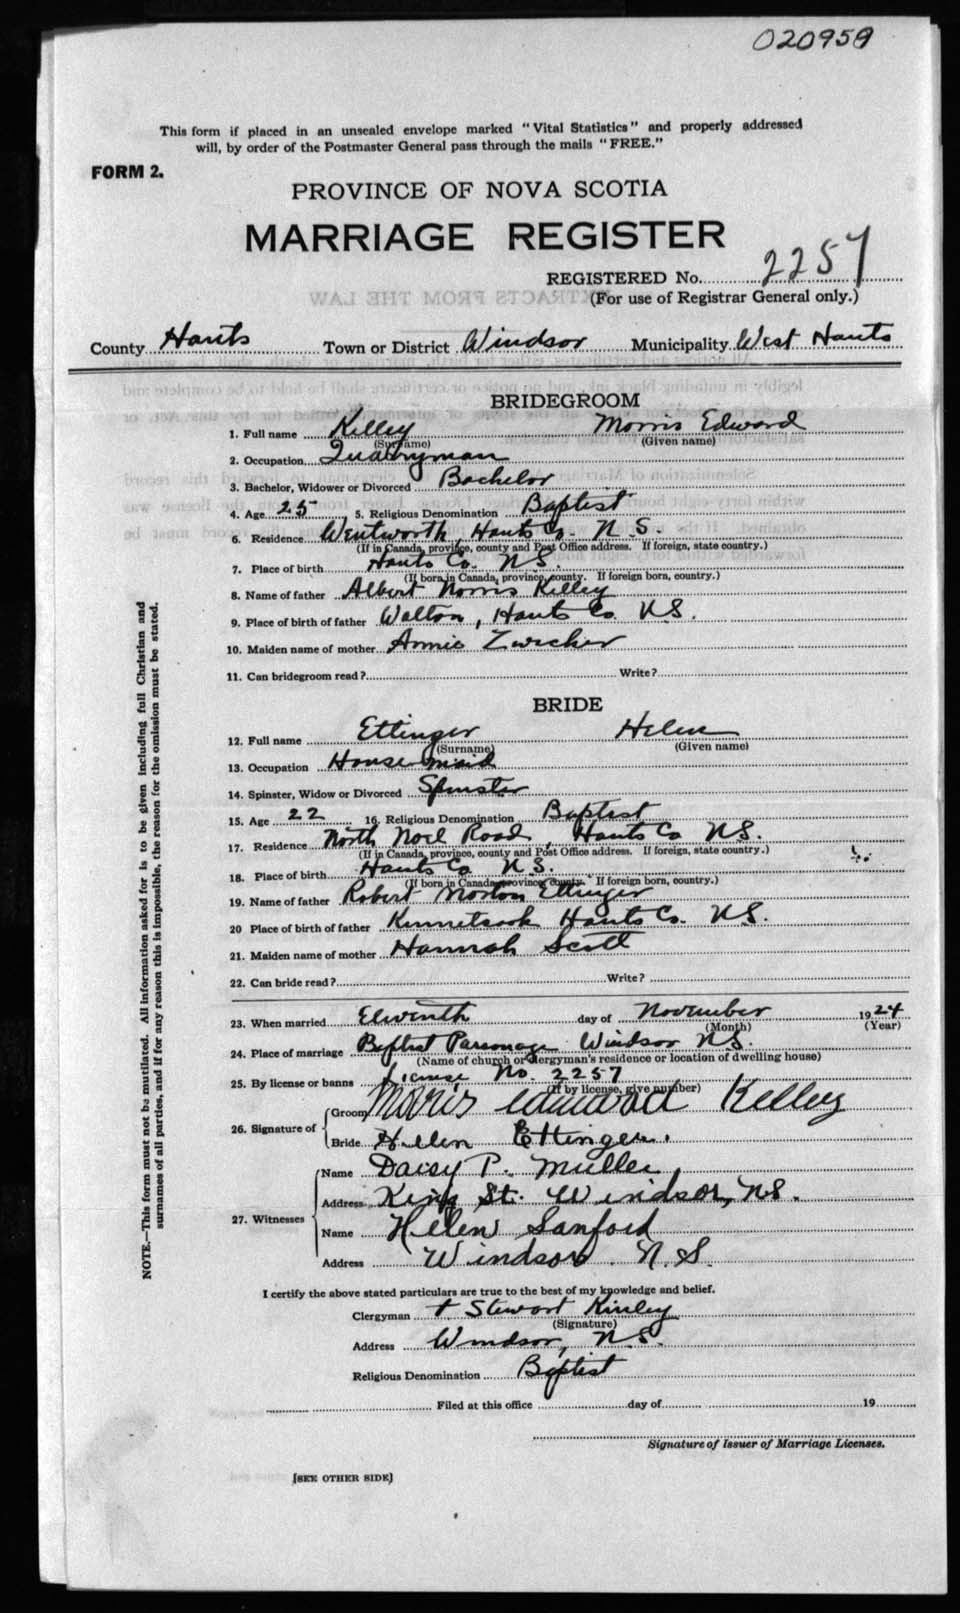 020959
This form if placed in an unsealed envelope marked "Vital Statistics" and properly addressed
will, by order of the Postmaster General pass through the mails "FREE."
FORM 2.
PROVINCE OF NOVA SCOTIA
MARRIAGE REGISTER
REGISTERED No. 2257
(For use of Registrar General only.)
County Hants Town or District Windsor Municipality West Hants
BRIDEGROOM
1. Full name Kelley Morris Edward
(Surname) (Given name)
2. Occupation Quarryman
3. Bachelor, Widower or Divorced Bachelor
4. Age 25 5. Religious Denomination Baptist
6. Residence Wentworth, Hants Co. N.S.
(If in Canada, province, county and Post Office address. If foreign, state country.)
7. Place of birth Hants Co. N.S.
(If born in Canada, province, county. If foreign born, country.)
8. Name of father Albert Norris Kelley
9. Place of birth of father Walton, Hants Co. N.S.
10. Maiden name of mother Annie Zwicker
11. Can bridegroom read? Write?
BRIDE
12. Full name Ettinger Helen
(Surname) (Given name)
13. Occupation House maid
14. Spinster, Widow or Divorced Spinster
15. Age 22 16. Religious Denomination Baptist
17. Residence North Noel Road, Hants Co N.S.
(If in Canada, province, county and Post Office address. If foreign, state country.)
18. Place of birth Hants Co N.S.
(If born in Canada, province, county. If foreign born, country.)
19. Name of father Robert Morton Ettinger
20 Place of birth of father Kennetcook Hants Co. N.S.
21. Maiden name of mother Hannah Scott
22. Can bride read? Write?
23. When married Eleventh day of November 1924
(Month) (Year)
24. Place of marriage Baptist Parsonage Windsor N.S.
(Name of church or clergyman's residence or location of dwelling house)
25. By license or banns License No. 2257
(If by license, give number)
26. Signature of Groom Morris Edward Kelley
Bride Helen Ettinger.
27. Witnesses Name Daisy P. Muller,
Address King St. Windsor, N.S.
Name Helen Sanford
Address Windsor. N.S.
I certify the above stated particulars are true to the best of my knowledge and belief.
Clergyman Stewart Kinley
(Signature)
Address Windsor, N.S.
Religious Denomination Baptist
Filed at this office day of 19
Signature of Issuer of Marriage Licenses.
[SEE OTHER SIDE]
NOTE.—This form must not be mutilated. All information asked for is to be given including full Christian and
surnames of all parties, and if for any reason this is impossible, the reason for the omission must be stated.